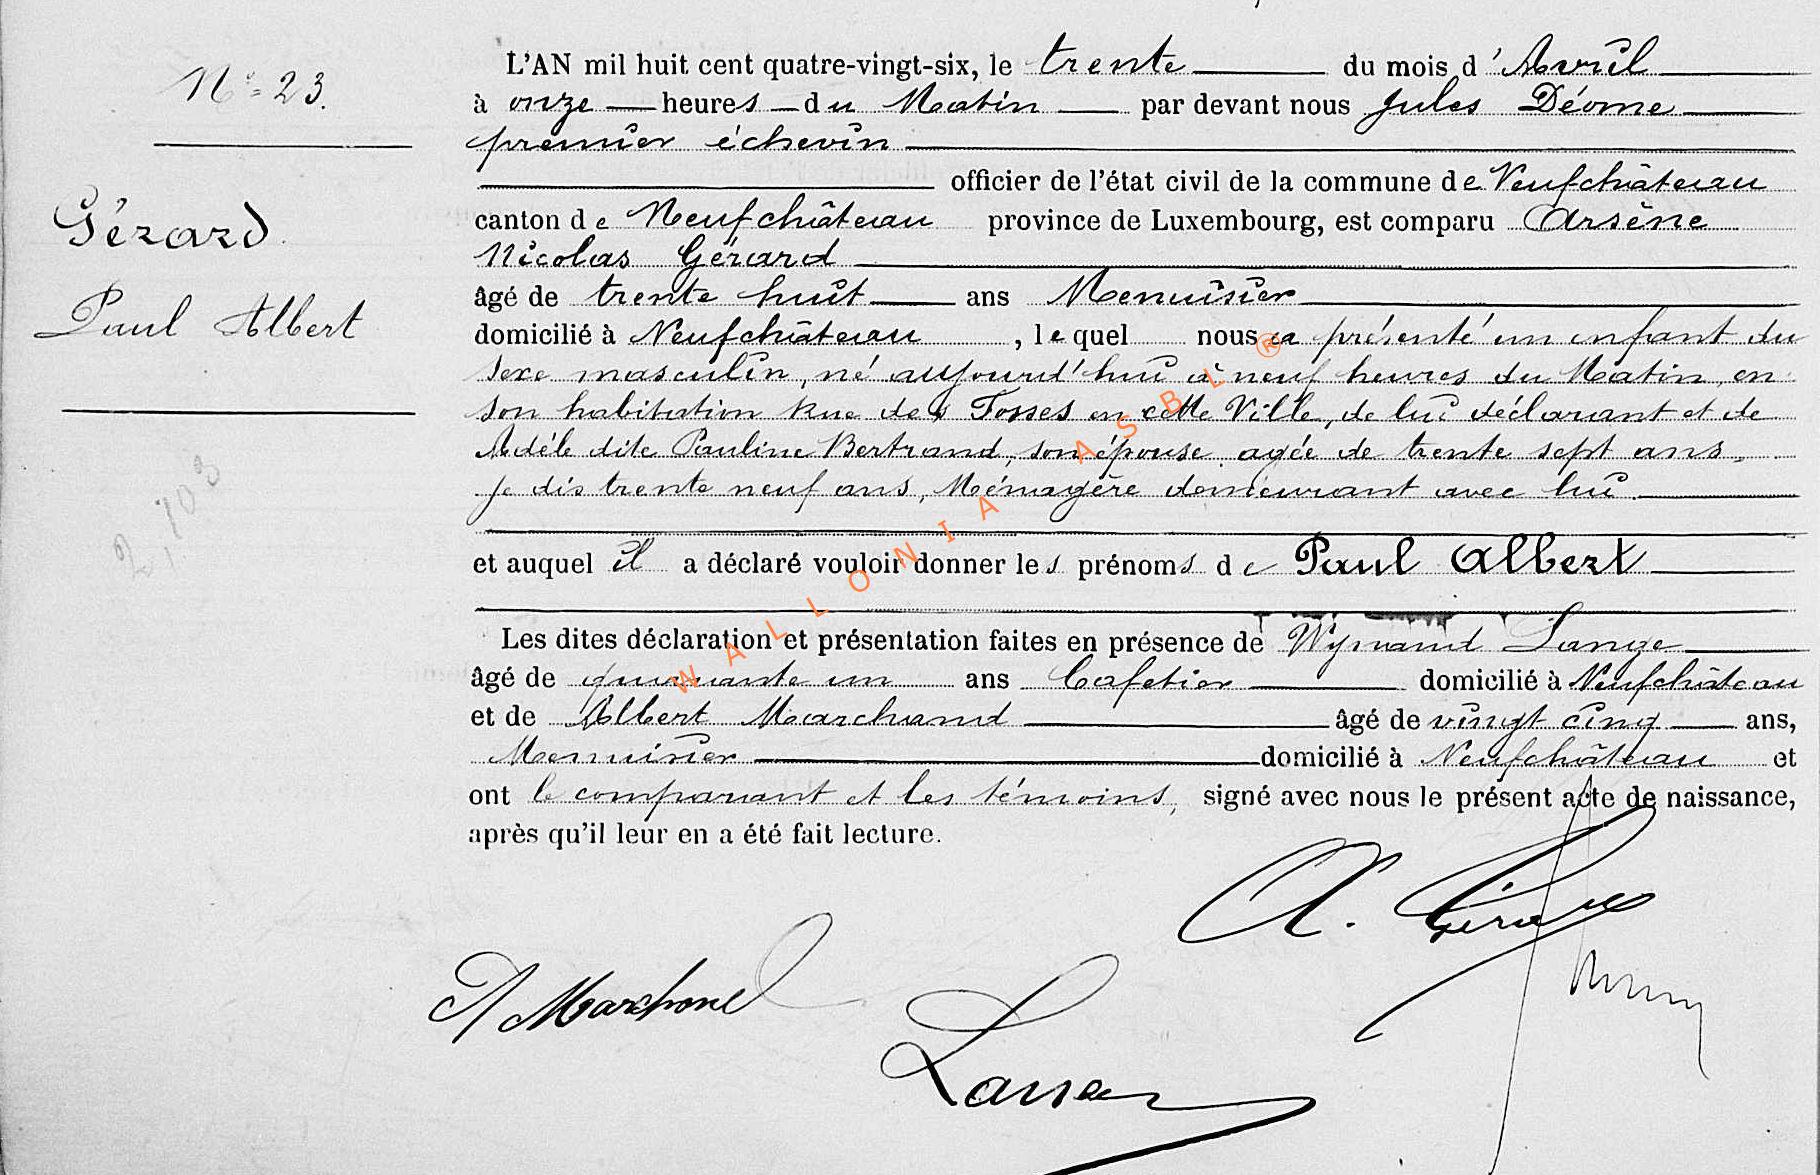 N° 23.
Gérard
Paul Albert
L'AN mil huit cent quatre-vingt-six, le trente du mois d'Avril
à onze heures du Matin par devant nous Jules Déome
premier échevin
officier de l'état civil de la commune de Neufchâteau
canton de Neufchâteau province de Luxembourg, est comparu Arsène
Nicolas Gérard
âgé de trente huit ans Menuisier
domicilié à Neufchâteau, lequel nous a présenté un enfant du
sexe masculin, né aujourd'hui à neuf heures du Matin, en
son habitation Rue des Fosses en cette Ville, de lui déclarant et de
Adèle dite Pauline Bertrand, son épouse agée de trente sept ans,
je dis trente neuf ans, Ménagère demeurant avec lui.
et auquel il a déclaré vouloir donner les prénoms de Paul Albert
Les dites déclaration et présentation faites en présence de Wynand Lange
âgé de quarante un ans Cafetier domicilié à Neufchâteau
et de Albert Marchand âgé de vingt cinq ans,
Menuisier domicilié à Neufchâteau et
ont le comparant et les témoins, signé avec nous le présent acte de naissance,
après qu'il leur en a été fait lecture.
A. Gérard
A Marchand
WALLONIA ASBL ®